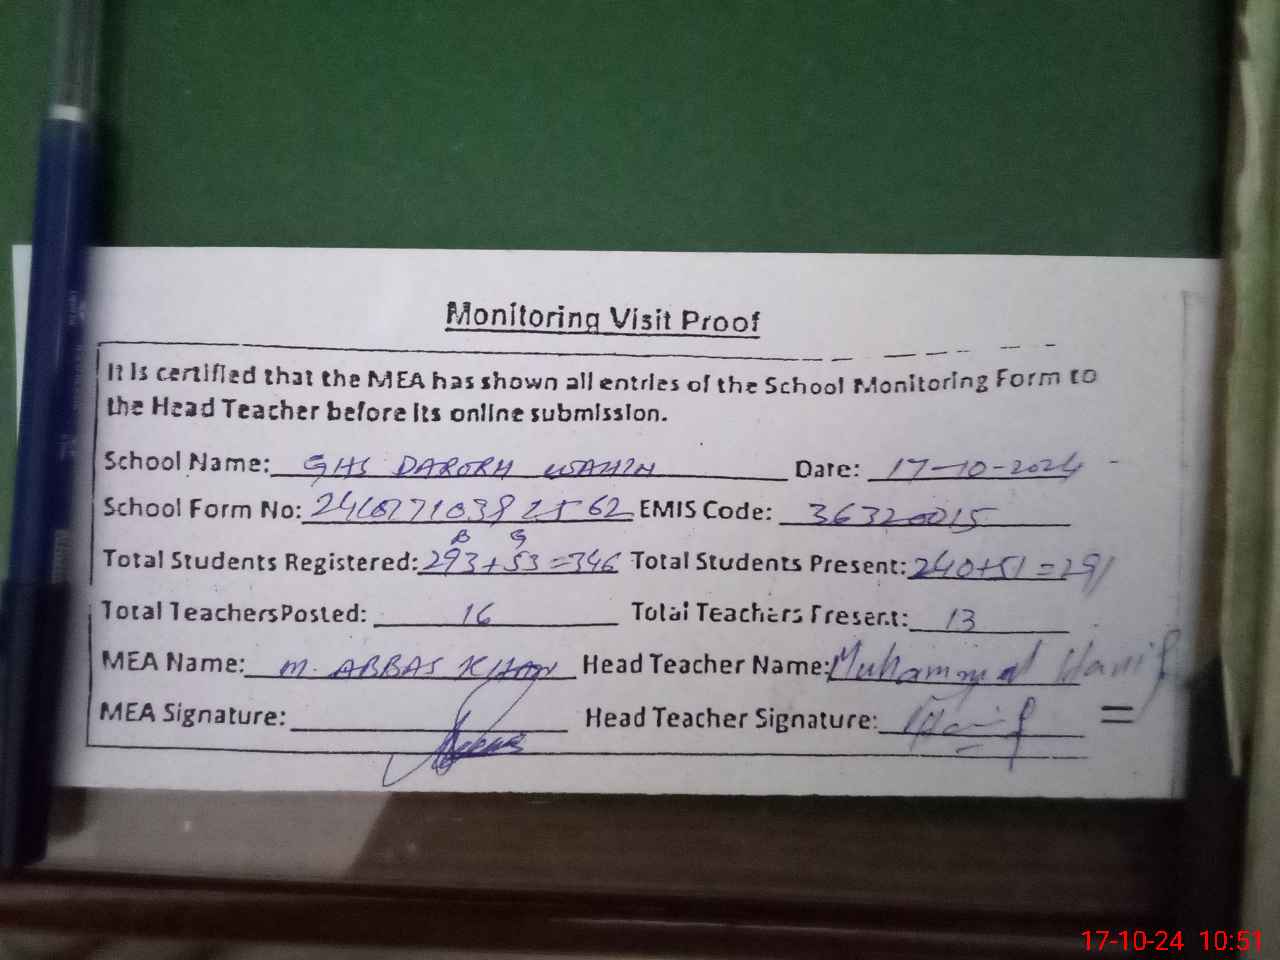 Monitoring Visit Proof
It is certified that the MEA has shown all entries of the School Monitoring Form to
the Head Teacher before its online submission.
School Name: GHS DARORH WAHIN Date: 17-10-2024
School Form No: EMIS Code: 36320015
B G
Total Students Registered: 293+53=346 Total Students Present: 240+51=291
Total Teachers Posted: 16 Total Teachers Present: 13
MEA Name: M. ABBAS KHAN Head Teacher Name: Muhammad Hanif
MEA Signature: Head Teacher Signature: Hanif
17-10-24 10:51